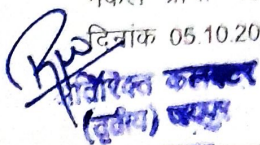 दिनांक 05.10.20
अतिरिक्त कलक्टर
(तृतीय) जयपुर